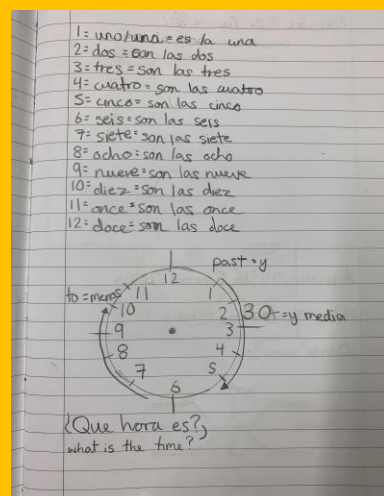 1= uno/una = es la una
2= dos = son las dos
3= tres = son las tres
4= cuatro = son las cuatro
5= cinco = son las cinco
6= seis = son las seis
7= siete = son las siete
8= ocho = son las ocho
9= nueve = son las nueve
10= diez = son las diez
11= once = son las once
12= doce = son las doce
past = y
to = menos
12
11
1
10
2
30 = y media
9
3
8
4
7
5
6
¿Que hora es?
what is the time?